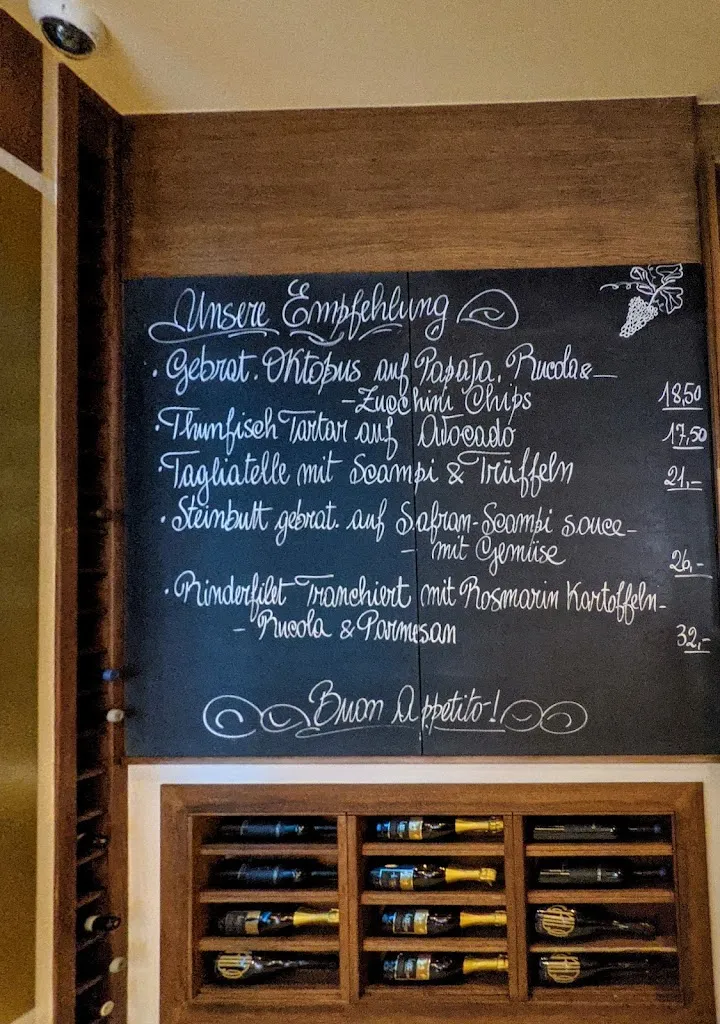 Unsere Empfehlung
· Gebrat. Oktopus auf Papaja, Rucola &-
-Zucchini Chips 18,50
· Thunfisch Tartar auf Avocado 17,50
· Tagliatelle mit Scampi & Trüffeln 21,-
· Steinbutt gebrat. auf Safran-Scampi souce-
- mit Gemüse 26,-
· Rinderfilet Tranchiert mit Rosmarin Kartoffeln-
- Rucola & Parmesan 32,-
Buon Appetito!